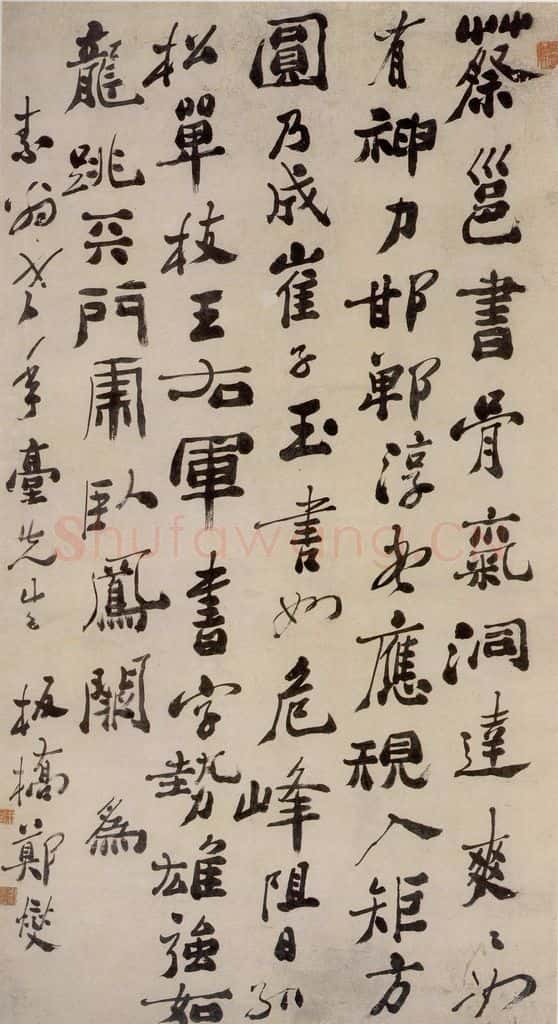 蔡邕書骨氣洞達爽爽如
有神力邯鄲淳書應規入矩方
圓乃成崔子玉書如危峰阻日孤
松單枝王右軍書字勢雄強如
龍跳天門虎臥鳳闕 為
素翁老年臺先生 板橋鄭燮
Shufawang.cn